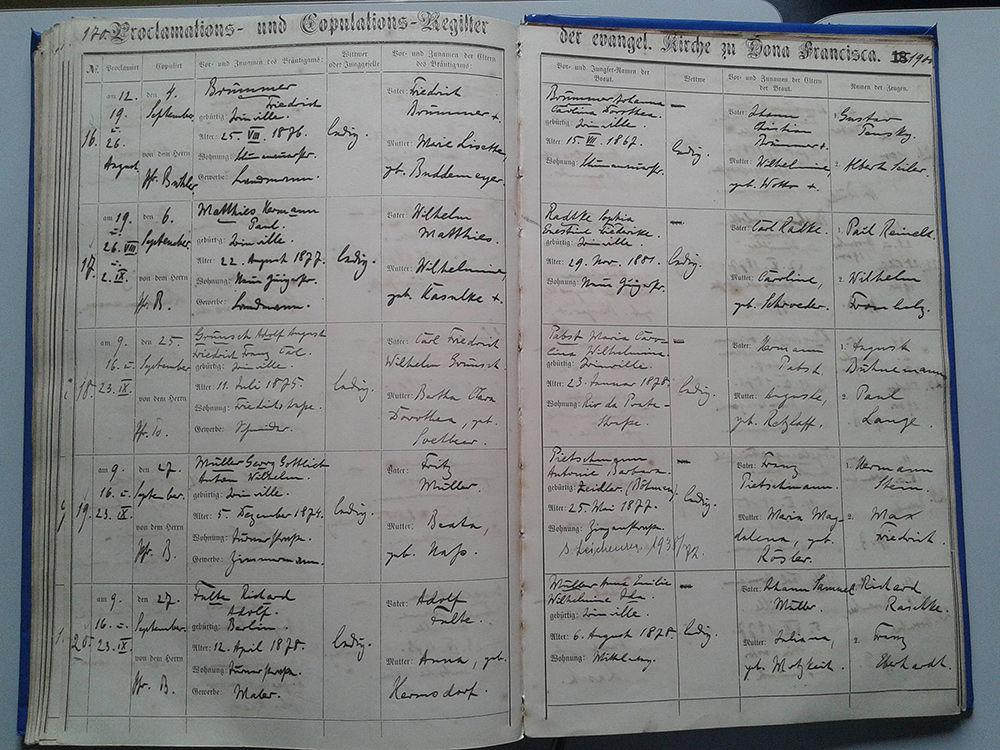 170. Proclamations- und Copulations-Register
der evangel. Kirche zu Dona Francisca. 18 1900
No. Proclamirt Copulirt Vor- und Zunamen des Bräutigams: Wittwer oder Junggeselle Vor- und Zunamen der Eltern des Bräutigams:
Vor- und Jungfer-Namen der Braut. Wittwe Vor- und Zunamen der Eltern der Braut. Namen der Zeugen.
16.
am 12.
19.
u.
26.
August
den 4.
September
von dem Herrn
Pfr. Bühler
Brümmer
Friedrich
gebürtig: Joinville.
Alter: 25. VIII. 1876.
Wohnung:
Gewerbe: Landmann.
ledig.
Vater: Friedrich
Brümmer +.
Mutter: Marie Lisette,
gb. Buddemeyer.
Brümmer Johanna
Carolina Dorothea.
gebürtig: Joinville.
Alter: 15. VII. 1867.
Wohnung:
ledig.
Vater: Johann
Christian
Brümmer +
Mutter: Wilhelmine
geb. +.
1. Gustav
2. Albert Seiler.
17.
am 19.
u.
26. VIII
u.
2. IX.
den 6.
September
von dem Herrn
Pfr. B.
Matthies Hermann
Paul.
gebürtig: Joinville.
Alter: 22. August 1877.
Wohnung:
Gewerbe: Landmann.
ledig.
Vater: Wilhelm
Matthies.
Mutter: Wilhelmine,
geb. Kasulke +.
Radtke Sophia
Ernestine Friederike.
gebürtig: Joinville.
Alter: 29. Nov. 1881.
Wohnung:
ledig.
Vater: Carl Radtke.
Mutter: Caroline,
geb. Schroeder.
1. Paul Reinelt.
2. Wilhelm
Fromholz.
18.
am 9.
16. u.
23. IX.
den 25.
September
von dem Herrn
Pfr. B.
Grünsch Adolf August
Friedrich Franz Carl.
gebürtig: Joinville.
Alter: 11. Juli 1875.
Wohnung: Friedrichstraße.
Gewerbe: Schneider.
ledig.
Vater: Carl Friedrich
Wilhelm Grünsch.
Mutter: Bertha Clara
Dorothea, geb.
Pabst Maria Caro-
lina Wilhelmina.
gebürtig: Joinville.
Alter: 23. Januar 1878.
Wohnung: Rio da Prata-
straße.
ledig.
Vater: Hermann
Pabst.
Mutter: Auguste,
geb. Retzlaff.
1. August
Dühnemann
2. Paul
Lange.
19.
am 9.
16. u.
23. IX.
den 27.
September.
von dem Herrn
Pfr. B.
Müller Georg Gottlieb
Anton Wilhelm.
gebürtig: Joinville.
Alter: 5. Dezember 1874.
Wohnung:
Gewerbe: Zimmermann.
ledig.
Vater: Fritz
Müller.
Mutter: Beata,
geb. Naß.
Pietschmann
Antonie Barbara.
gebürtig: Zeidler. (Böhmen)
Alter: 25. Mai 1877.
Wohnung: Ziegeleistraße.
ledig.
Vater: Franz
Pietschmann.
Mutter: Maria Mag-
dalena, geb.
Rösler.
1. Hermann
Stein.
2. Max
Friedrich.
20.
am 9.
16. u.
23. IX.
den 27.
September.
von dem Herrn
Pfr. B.
Falte Richard
Adolf.
gebürtig: Berlin.
Alter: 12. April 1878.
Wohnung:
Gewerbe: Maler.
ledig.
Vater: Adolf
Falte.
Mutter: Anna, geb.
Hermsdorf.
Müller Anna Emilie
Wilhelmine Ida.
gebürtig: Joinville.
Alter: 6. August 1878.
Wohnung: Mittelweg.
ledig.
Vater: Johann Samuel
Müller.
Mutter: Juliana,
geb. Motzkeit.
1. Richard
Raschke.
2. Franz
Eberhardt.